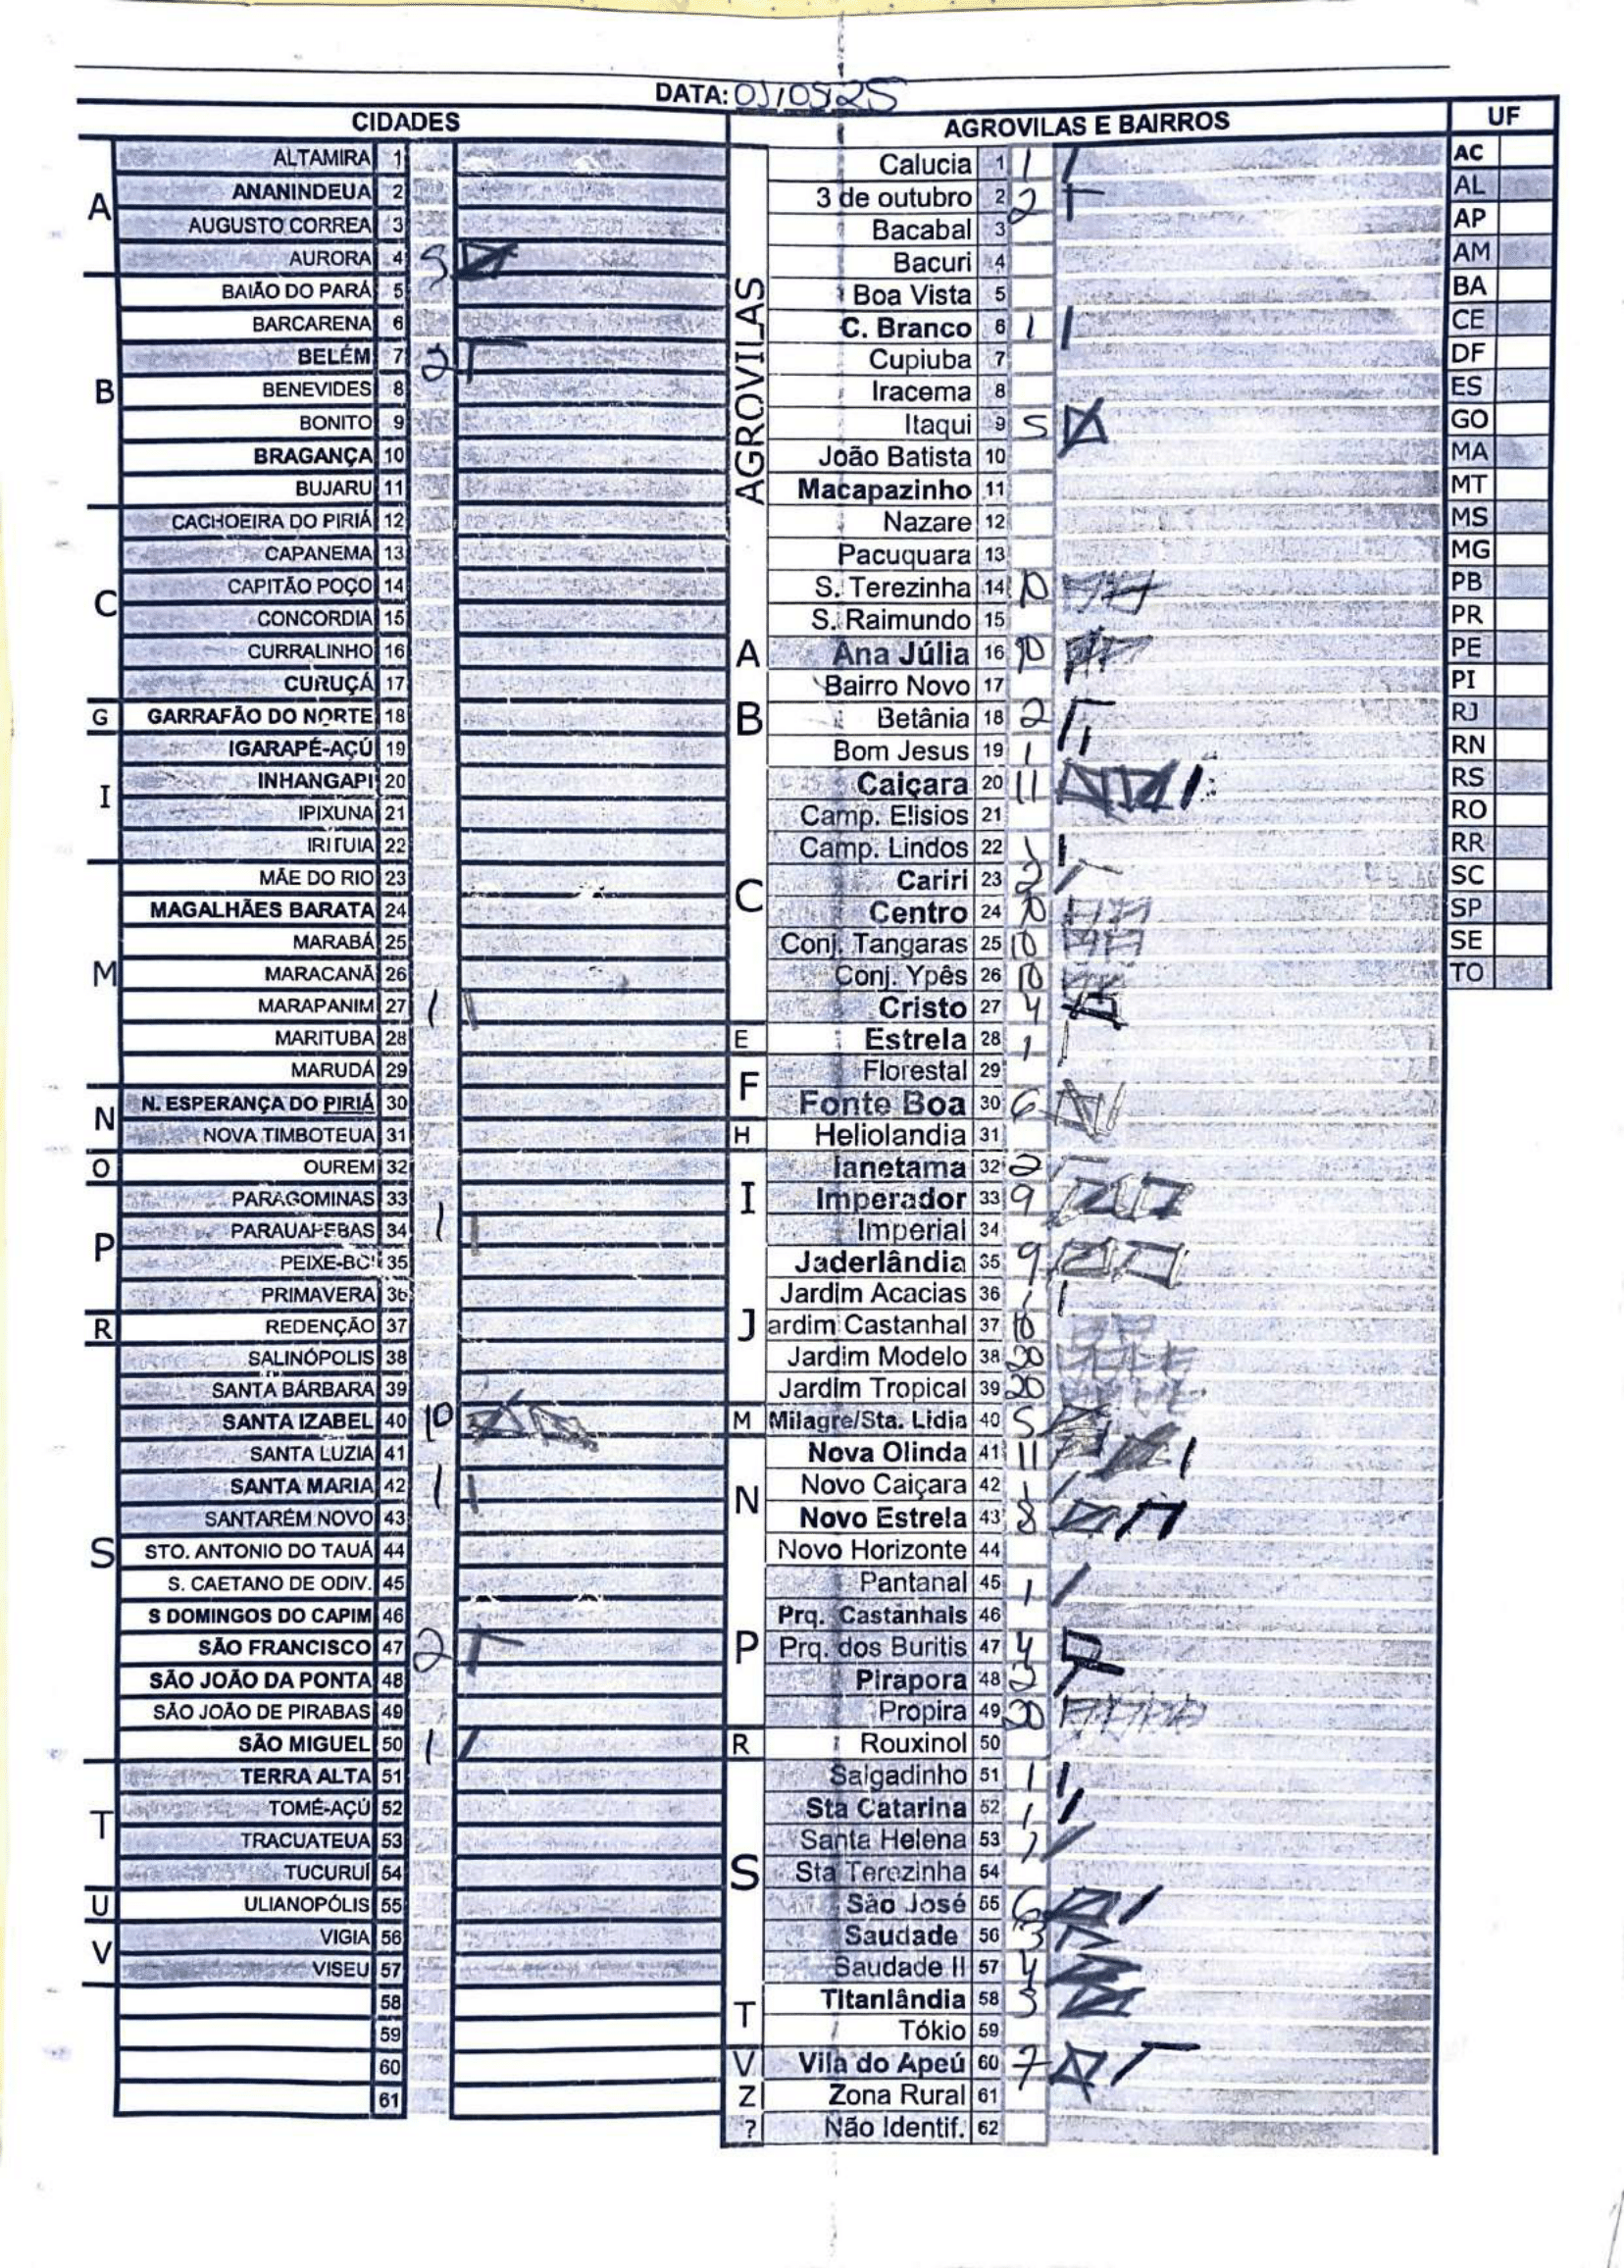 DATA: 01/09/25
CIDADES
AGROVILAS E BAIRROS
UF
A
ALTAMIRA 1
ANANINDEUA 2
AUGUSTO CORREA 3
AURORA 4 5
B
BAIÃO DO PARÁ 5
BARCARENA 6
BELÉM 7 2
BENEVIDES 8
BONITO 9
BRAGANÇA 10
BUJARU 11
C
CACHOEIRA DO PIRIÁ 12
CAPANEMA 13
CAPITÃO POÇO 14
CONCORDIA 15
CURRALINHO 16
CURUÇÁ 17
G
GARRAFÃO DO NORTE 18
I
IGARAPÉ-AÇÚ 19
INHANGAPI 20
IPIXUNA 21
IRITUIA 22
M
MÃE DO RIO 23
MAGALHÃES BARATA 24
MARABÁ 25
MARACANÃ 26
MARAPANIM 27 1
MARITUBA 28
MARUDÁ 29
N
N. ESPERANÇA DO PIRIÁ 30
NOVA TIMBOTEUA 31
O
OUREM 32
P
PARAGOMINAS 33
PARAUAPEBAS 34 1
PEIXE-BOI 35
PRIMAVERA 36
R
REDENÇÃO 37
S
SALINÓPOLIS 38
SANTA BÁRBARA 39
SANTA IZABEL 40 10
SANTA LUZIA 41
SANTA MARIA 42 1
SANTARÉM NOVO 43
STO. ANTONIO DO TAUÁ 44
S. CAETANO DE ODIV. 45
S DOMINGOS DO CAPIM 46
SÃO FRANCISCO 47 2
SÃO JOÃO DA PONTA 48
SÃO JOÃO DE PIRABAS 49
SÃO MIGUEL 50 1
T
TERRA ALTA 51
TOMÉ-AÇÚ 52
TRACUATEUA 53
TUCURUÍ 54
U
ULIANOPÓLIS 55
V
VIGIA 56
VISEU 57
58
59
60
61
AGROVILAS
Calucia 1 1
3 de outubro 2 2
Bacabal 3
Bacuri 4
Boa Vista 5
C. Branco 6 1
Cupiuba 7
Iracema 8
Itaqui 9 5
João Batista 10
Macapazinho 11
Nazare 12
Pacuquara 13
S. Terezinha 14 10
S. Raimundo 15
A
Ana Júlia 16 10
Bairro Novo 17
B
Betânia 18 2
Bom Jesus 19 1
C
Caiçara 20 11
Camp. Elisios 21
Camp. Lindos 22 1
Cariri 23 2
Centro 24 10
Conj. Tangaras 25 10
Conj. Ypês 26 10
Cristo 27 4
E
Estrela 28 1
F
Florestal 29
Fonte Boa 30 6
H
Heliolandia 31
I
Ianetama 32 2
Imperador 33 9
Imperial 34
J
Jaderlândia 35 9
Jardim Acacias 36 1
ardim Castanhal 37 10
Jardim Modelo 38 20
Jardim Tropical 39 20
M
Milagre/Sta. Lidia 40 5
N
Nova Olinda 41 11
Novo Caiçara 42 1
Novo Estrela 43 8
Novo Horizonte 44
P
Pantanal 45 1
Prq. Castanhais 46
Prq. dos Buritis 47 4
Pirapora 48 2
Propira 49 20
R
Rouxinol 50
S
Salgadinho 51 1
Sta Catarina 52 1
Santa Helena 53 1
Sta Terezinha 54
São José 55 6
Saudade 56 3
Saudade II 57 4
T
Titanlândia 58 5
Tókio 59
V
Vila do Apeú 60 7
Z
Zona Rural 61
?
Não Identif. 62
AC
AL
AP
AM
BA
CE
DF
ES
GO
MA
MT
MS
MG
PB
PR
PE
PI
RJ
RN
RS
RO
RR
SC
SP
SE
TO